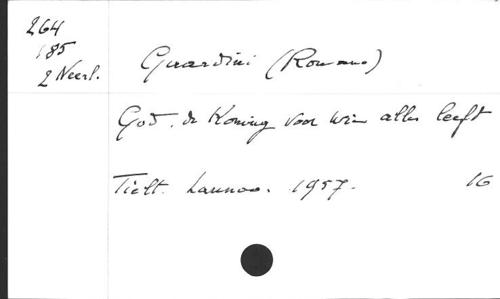 264
185
2 Neerl.
Guardini (Romano)
God. de Koning voor wie alles leeft
Tielt. Lannoo. 1957. 16